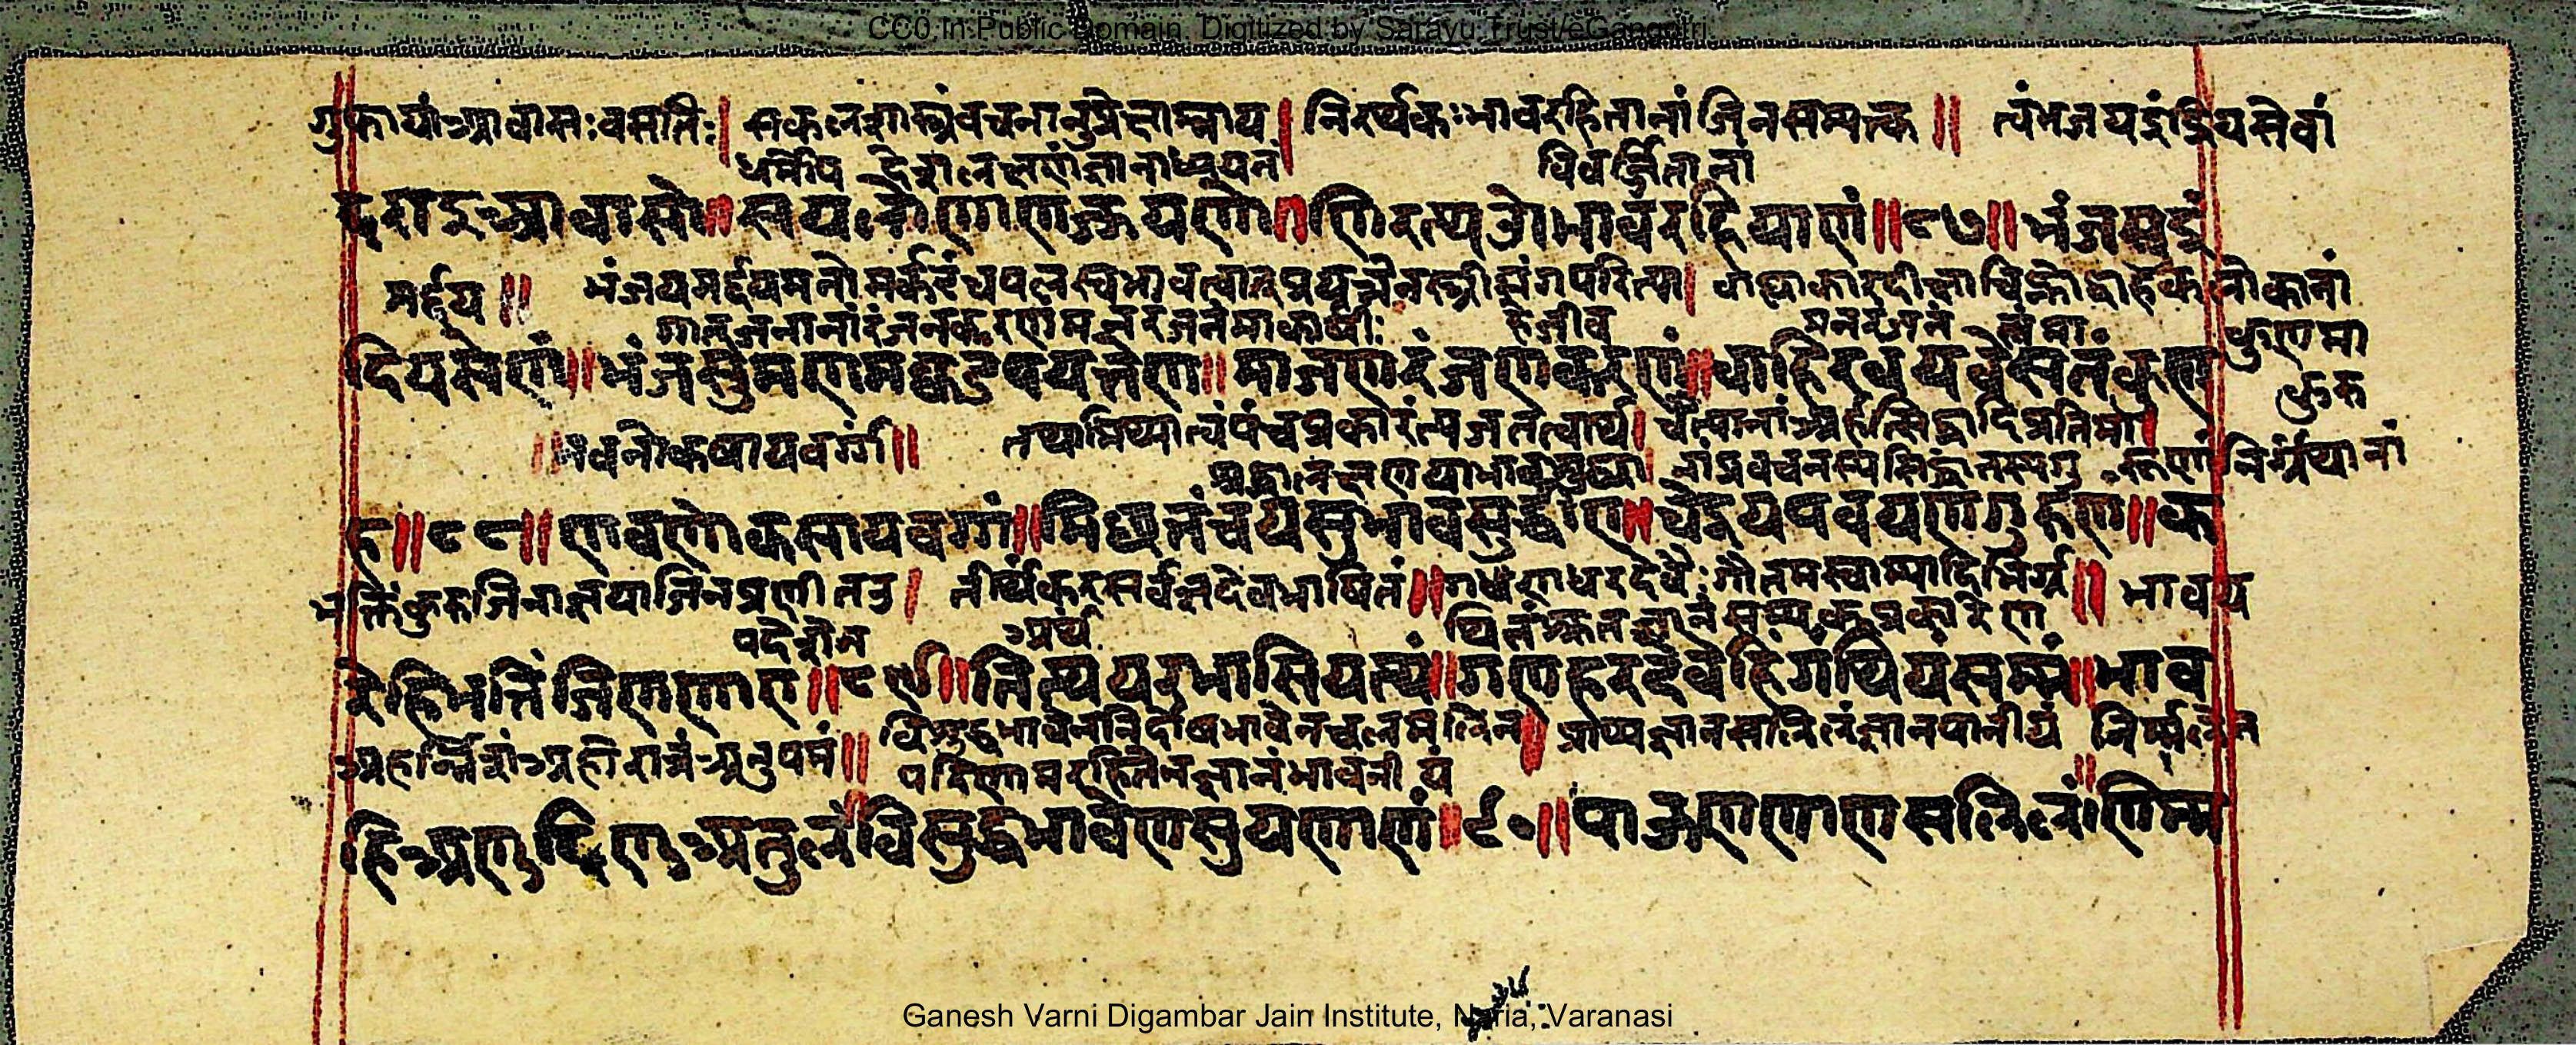 CC0. In Public Domain. Digitized by Sarayu Trust/eGangotri
गुफायां आवासः वसतिः। सकलशास्त्रं वचनानुप्रेक्षाम्नाय। निरर्थकः भावरहितानां जिनसम्यक्त्व॥ त्वं भंजय इंद्रियसेवां
धर्मोप देशलक्षणं ज्ञानाध्ययनं विवर्ज्जितानां
दराइ आवासो॥ सयलो णाणज्झयणो॥ णिरत्थओ भावरहियाणं॥८७॥ भंजसु इं
मर्द्दय॥ भंजय मर्द्दय मनोमर्कटं चपलस्वभावत्वात् प्रयत्नेन स्त्रीसंगपरित्या। लोकानां
जनानां रंजनकरणं मनरंजनं माकार्षीः हे जीव मनरंजनं त्वं मा
दियसेणं॥ भंजसु मणमक्कडं पयत्तेण॥ मा जणरंजणकरणं॥ वाहिरवयवेस तं कुण
कुरु
नवनोकषायवर्गं॥ तथा मिथ्यात्वं पंचप्रकारं त्यज तत्वार्थ। चैत्यानां अर्हत्सिद्धादिप्रतिमा।
श्रद्धानलक्षणया भावशुद्ध्या। नां प्रवचनस्य सिद्धांतस्य गु रूणां निर्ग्रंथानां
ह॥८८॥ णवणोकसायवग्गं॥ मिच्छत्तं चयसु भावसुद्धीए॥ चेइयपवयणगुरुणं॥ क
भक्तिं कुरु जिनाज्ञया जिनप्रणीतउ। तीर्थंकरसर्वज्ञदेवभाषितं॥ गणधरदेवैः गौतमस्वाम्यादिभिर्ग्र॥ भावय
पदेशेन अर्थं थितं श्रुतज्ञानं सम्यक् प्रकारेण
रेहि भत्तिं जिणाणाए॥८९॥ तित्थयरभासियत्थं॥ गणहरदेवेहिं गंथियं सम्मं॥ भाव
अहर्निशं अहोरात्रं अनुपमं॥ विशुद्धभावेन निर्दोषभावेन चलमलिन। प्राप्य ज्ञानसलिलं ज्ञानपानीयं निर्म्मलेन
परिणामरहितेन ज्ञानं भावनीयं
हि अणुदिणु अतुलं विसुद्धभावेण सुयणाणं॥९०॥ पाऊण णाणसलिलं णिम्म
Ganesh Varni Digambar Jain Institute, Naria, Varanasi